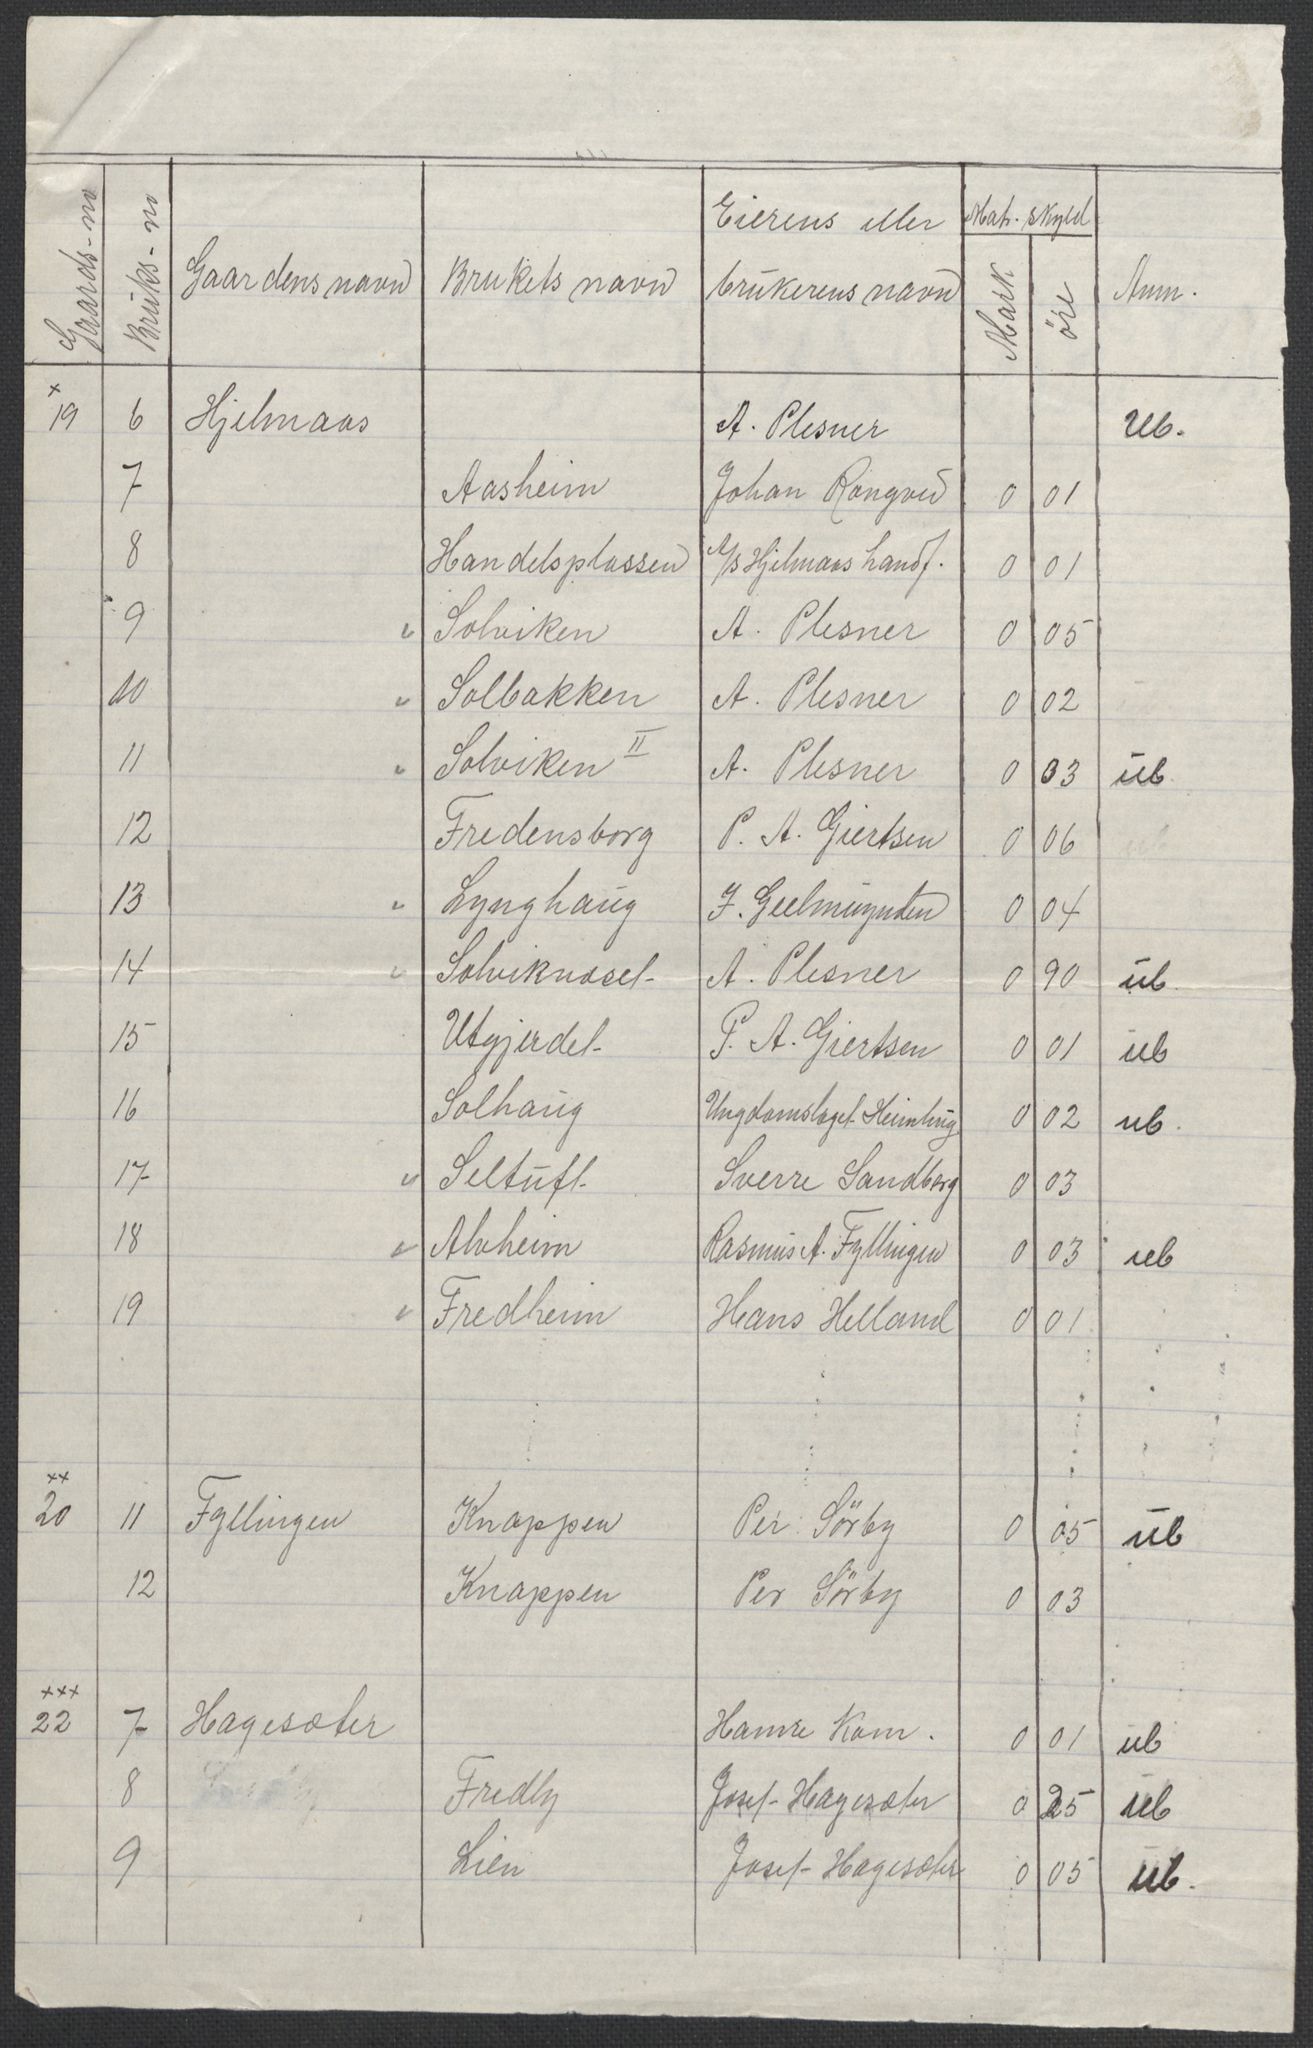 Gaards-no Bruks-no Gaardens navn Brukets navn Eierens eller brukerens navn Matr. skyld Mark öre Anm.
x
19 6 Hjelmaas A. Plesner Ub.
7 Aasheim Johan Rongved 0 01
8 Handelsplassen A/S Hjelmaas handf. 0 01
9 Solviken A. Plesner 0 05
10 Solbakken A. Plesner 0 02
11 Solviken II A. Plesner 0 03 ub
12 Fredensborg P. A. Giertsen 0 06
13 Lynghaug F. Geelmuyden 0 04
14 Solviknaset A. Plesner 0 90 ub
15 Utgjerdet P. A. Giertsen 0 01 ub
16 Solhaug Ungdomslaget Heimhug 0 02 ub.
17 Seltuft Sverre Sandberg 0 03
18 Alvheim Rasmus A. Fyllingen 0 03 ub
19 Fredheim Hans Helland 0 01
xx
20 11 Fyllingen Knappen Per Sörby 0 05 ub
12 Knappen Per Sörby 0 03
xxx
22 7 Hagesæter Hamre Kom. 0 01 ub
8 Fredly Josef Hagesæter 0 25 ub
9 Lien Josef Hagesæter 0 05 ub.